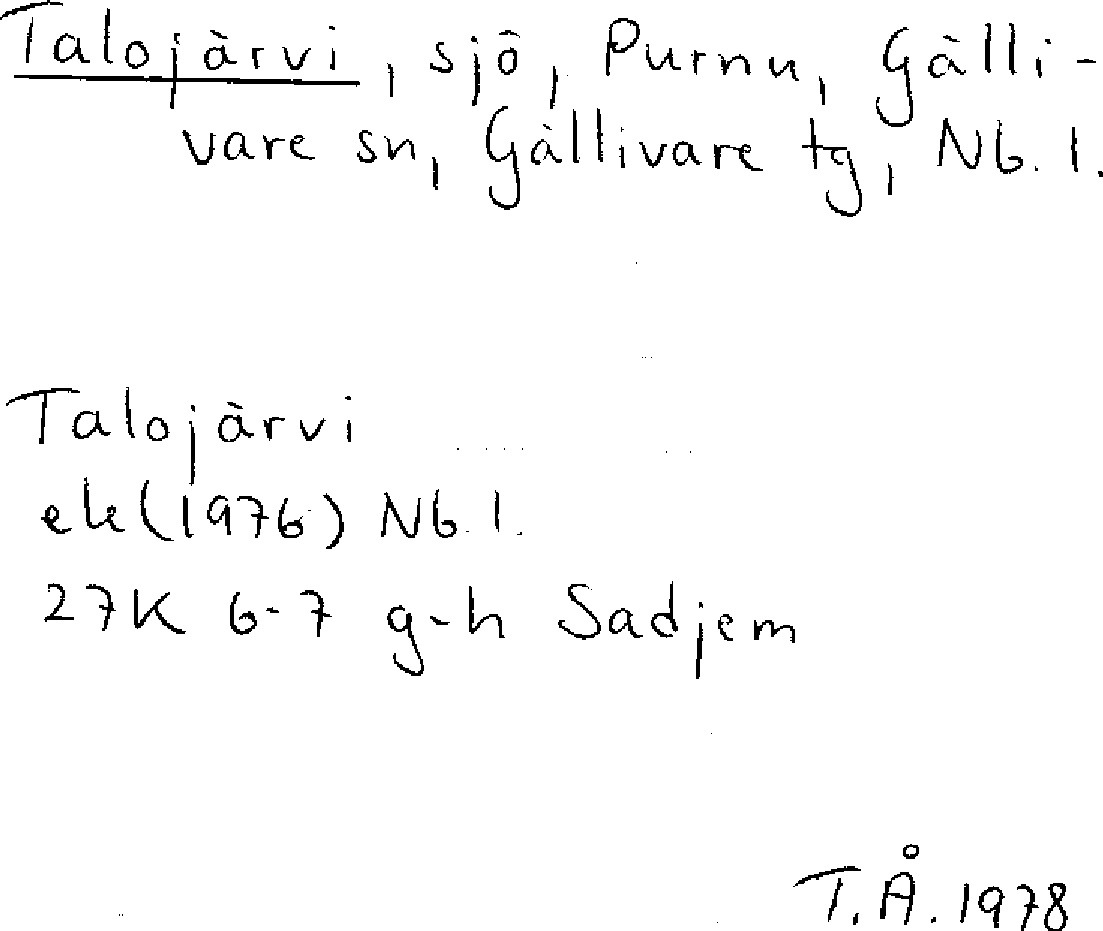 Talojärvi, sjö, Purnu, Gälli-
vare sn, Gällivare tg, Nb. l.
Talojärvi
ek (1976) Nb. l.
27K 6-7 g-h Sadjem
T.Å. 1978